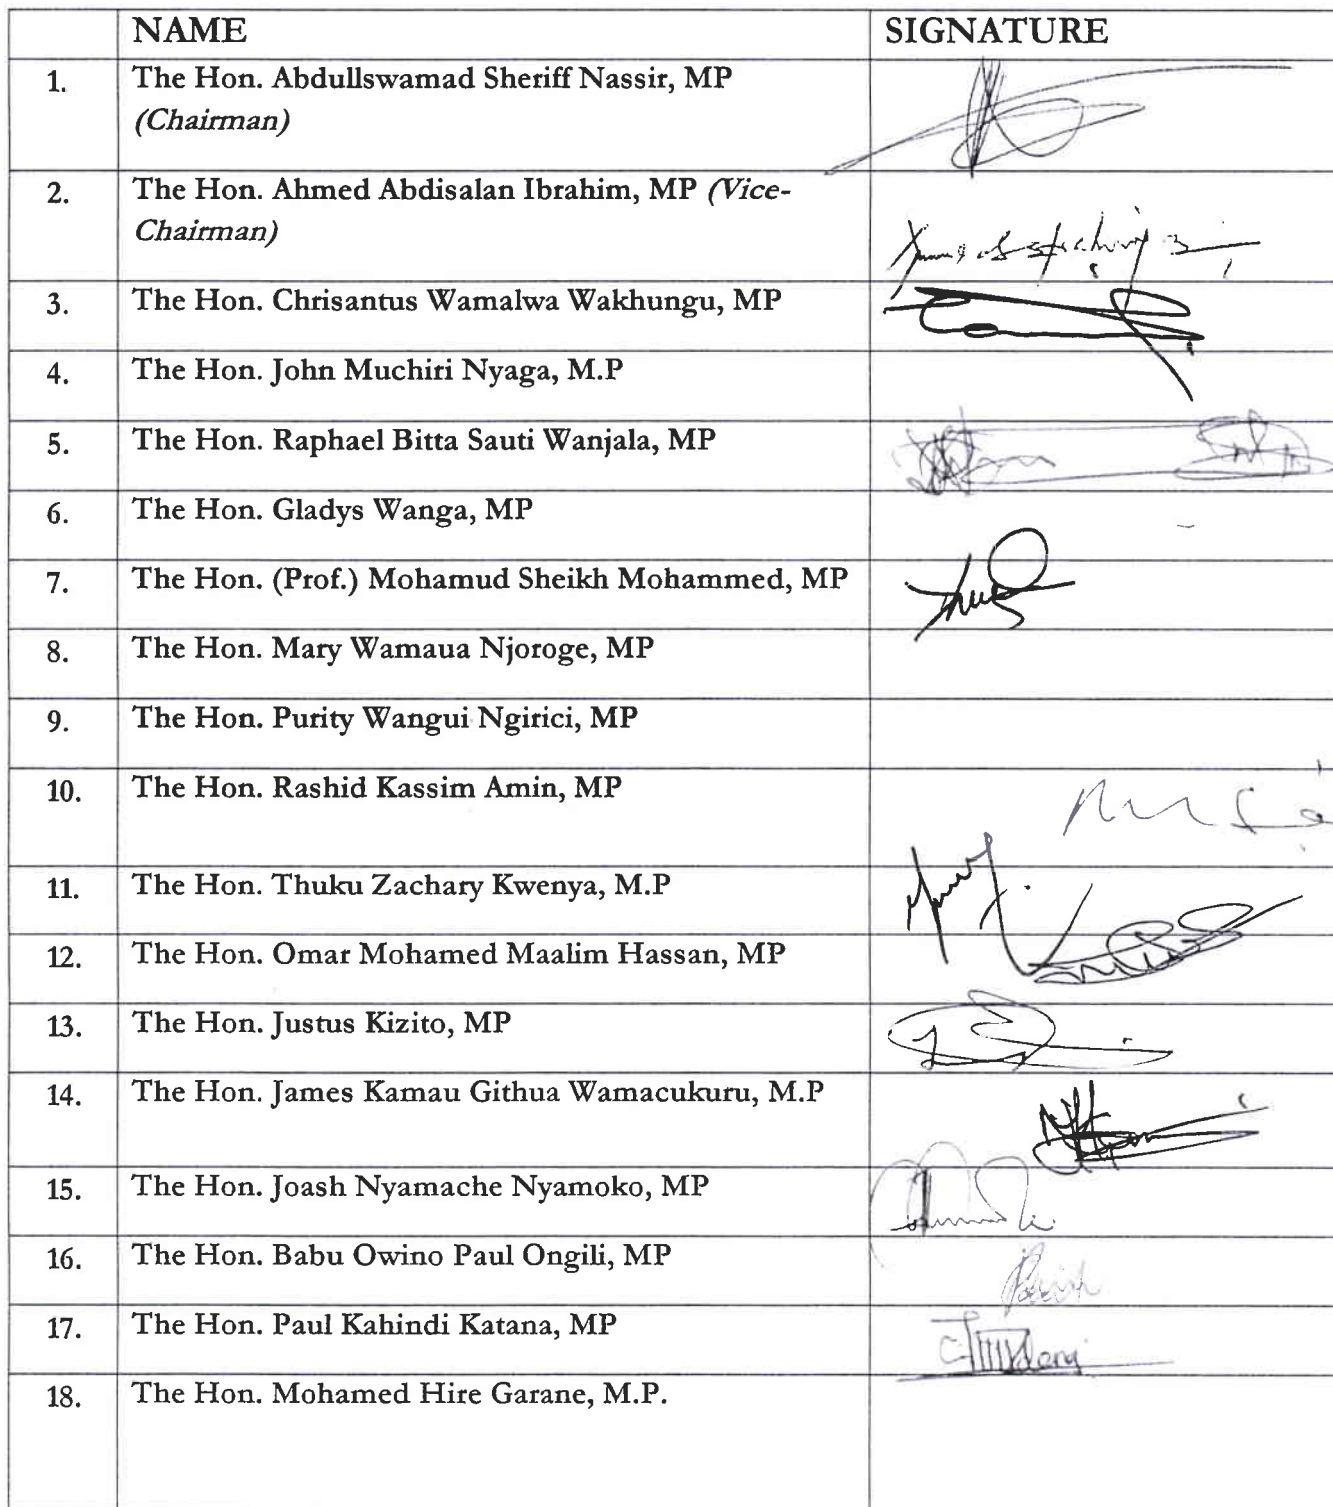 NAME SIGNATURE
1. The Hon. Abdullswamad Sheriff Nassir, MP
(Chairman)
2. The Hon. Ahmed Abdisalan Ibrahim, MP (Vice-
Chairman)
3. The Hon. Chrisantus Wamalwa Wakhungu, MP
4. The Hon. John Muchiri Nyaga, M.P
5. The Hon. Raphael Bitta Sauti Wanjala, MP
6. The Hon. Gladys Wanga, MP
7. The Hon. (Prof.) Mohamud Sheikh Mohammed, MP
8. The Hon. Mary Wamaua Njoroge, MP
9. The Hon. Purity Wangui Ngirici, MP
10. The Hon. Rashid Kassim Amin, MP
11. The Hon. Thuku Zachary Kwenya, M.P
12. The Hon. Omar Mohamed Maalim Hassan, MP
13. The Hon. Justus Kizito, MP
14. The Hon. James Kamau Githua Wamacukuru, M.P
15. The Hon. Joash Nyamache Nyamoko, MP
16. The Hon. Babu Owino Paul Ongili, MP
17. The Hon. Paul Kahindi Katana, MP
18. The Hon. Mohamed Hire Garane, M.P.